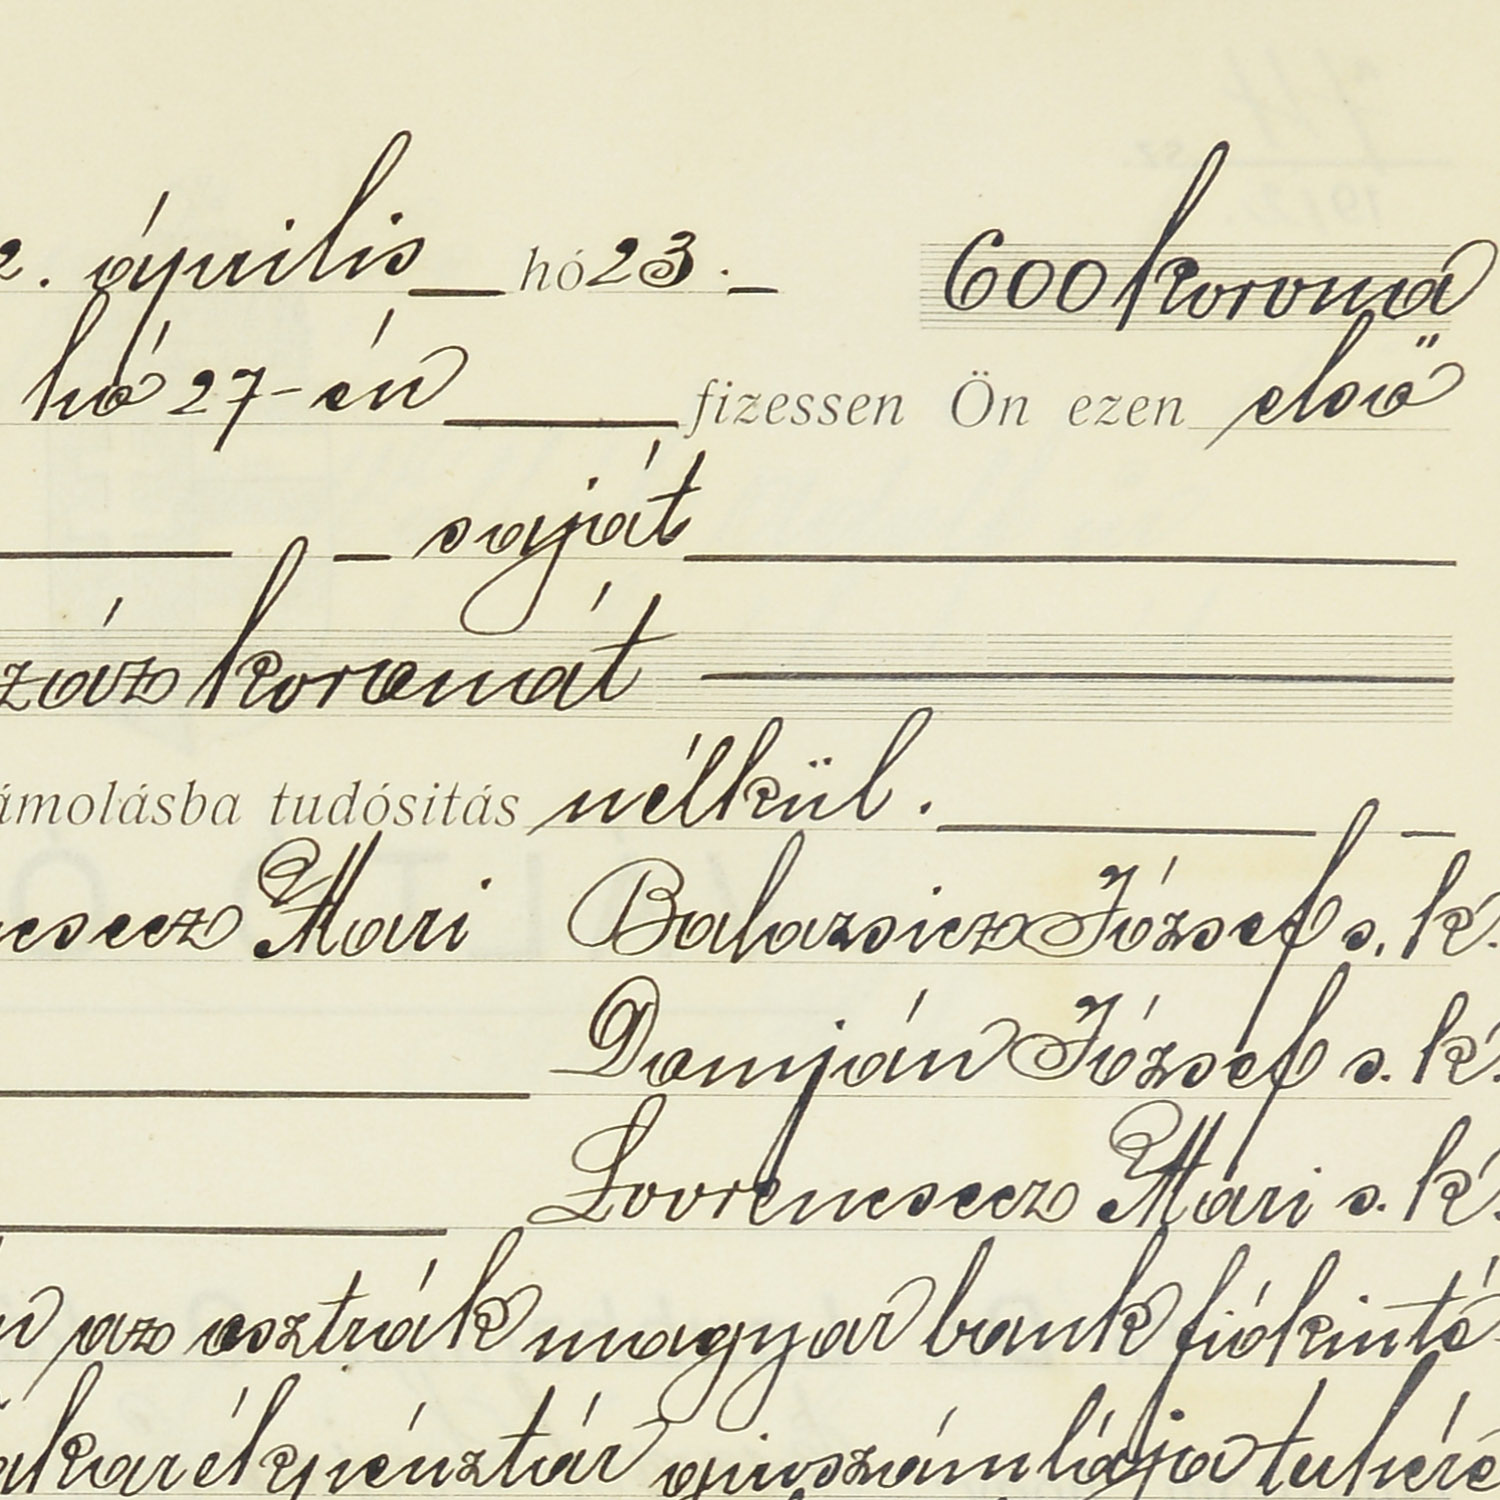 2. április hó 23. 600 korona
hó 27-én fizessen Ön ezen első
saját
száz koronát
ámolásba tudósitás nélkül.
ncsecz Mari Balazsicz József s. k.
Damján József s. k.
Lovrencsecz Mari s. k.
az osztrák magyar bank fiókinté
akarékpénztár girószámlája terhére